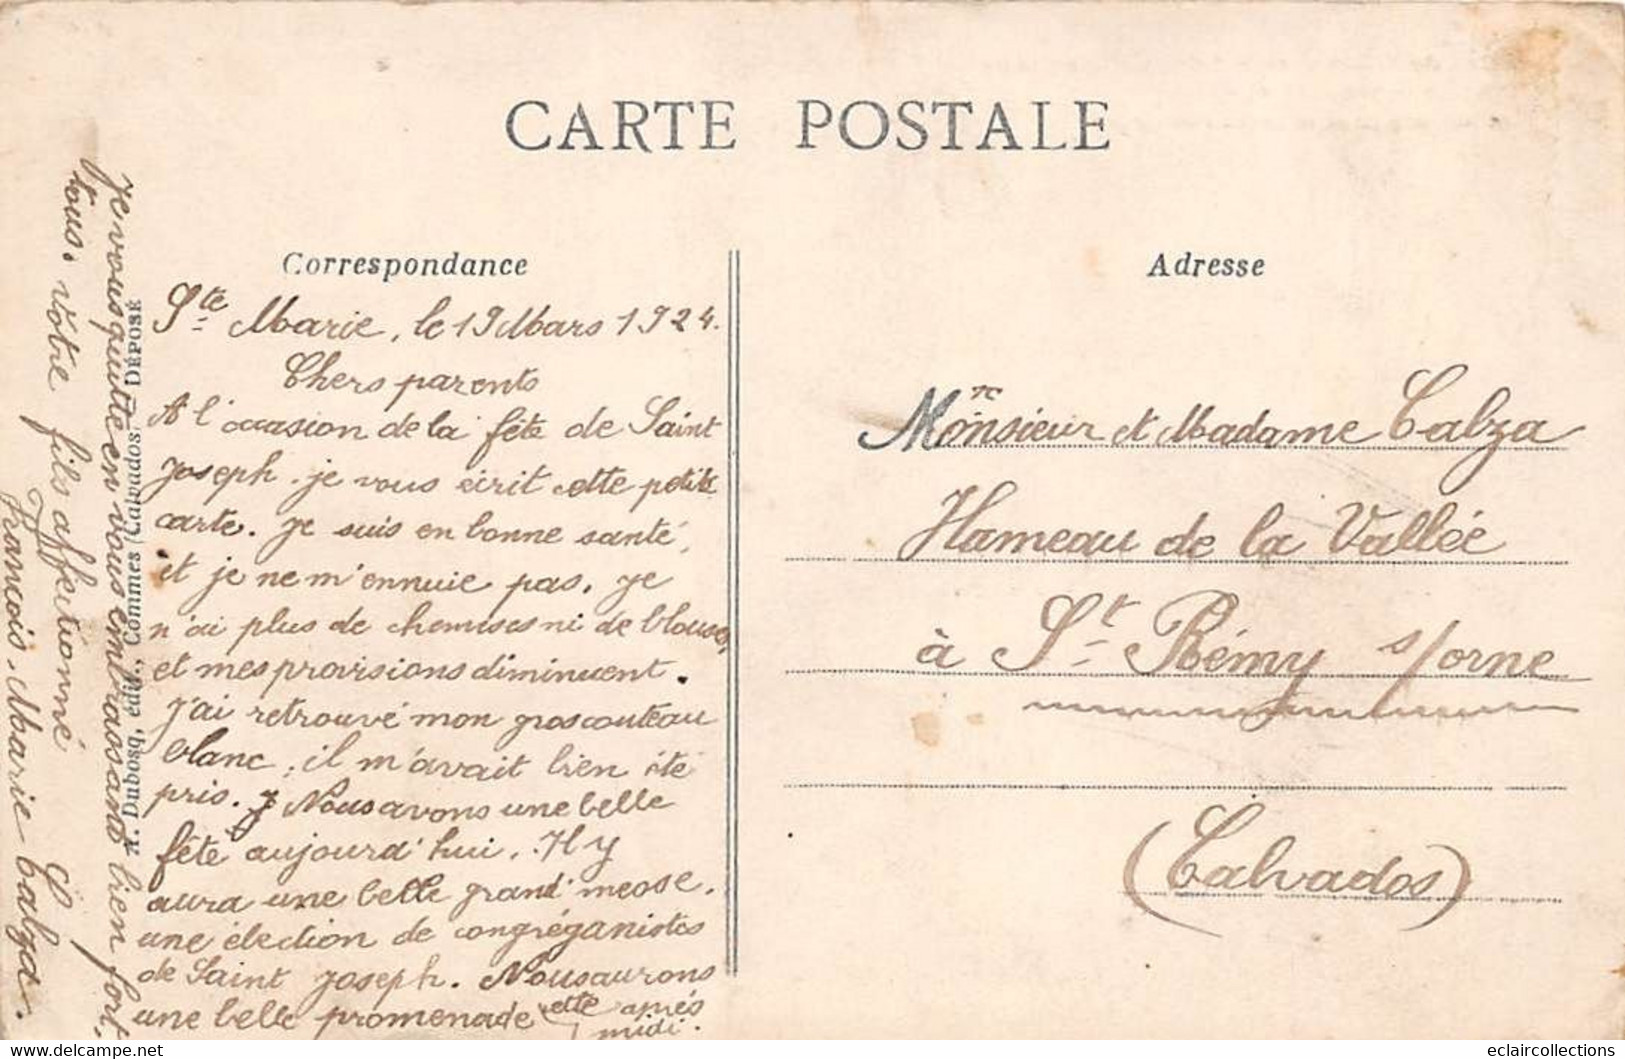 CARTE POSTALE
Correspondance
Adresse
Ste Marie, le 19 Mars 1924.
Chers parents
A l'occasion de la fête de Saint
Joseph. je vous écrit cette petite
carte. Je suis en bonne santé,
et je ne m'ennuie pas. Je
n'ai plus de chemises ni de blouses,
et mes provisions diminuent.
J'ai retrouvé mon gros couteau
blanc, il m'avait bien été
pris. Nous avons une belle
fête aujourd'hui. Il y
aura une belle grand'messe.
une élection de congréganistes
de Saint Joseph. Nous aurons
une belle promenade cette après
midi.
Je vous quitte en vous embrassant bien fort,
tous. Votre fils affectionné
François-Marie Calza.
F. Dubosq, édit., Commes (Calvados). DÉPOSÉ
Monsieur et Madame Calza
Hameau de la Vallée
à St Rémy s/orne
(Calvados)
www.delcampe.net
eclaircollections